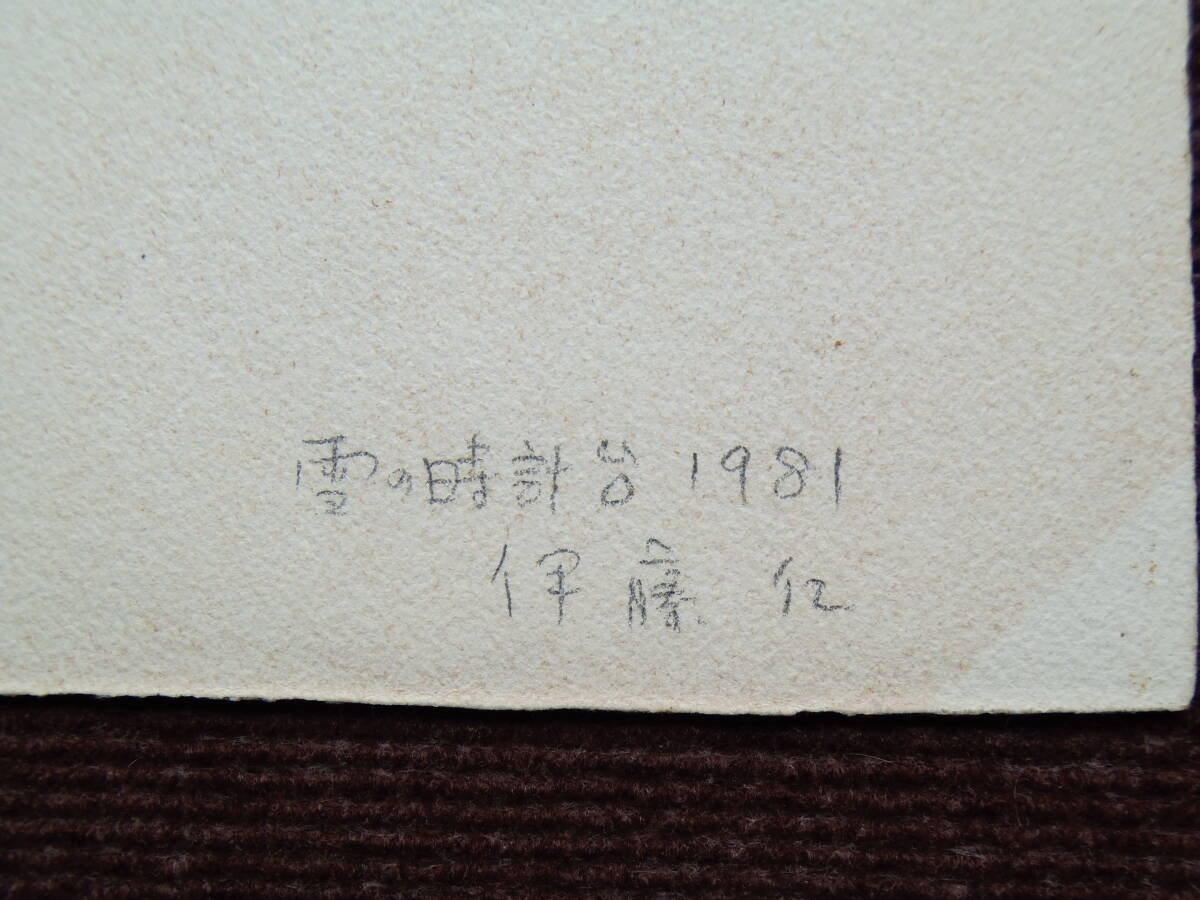 雪の時計台 1981
伊藤 仁